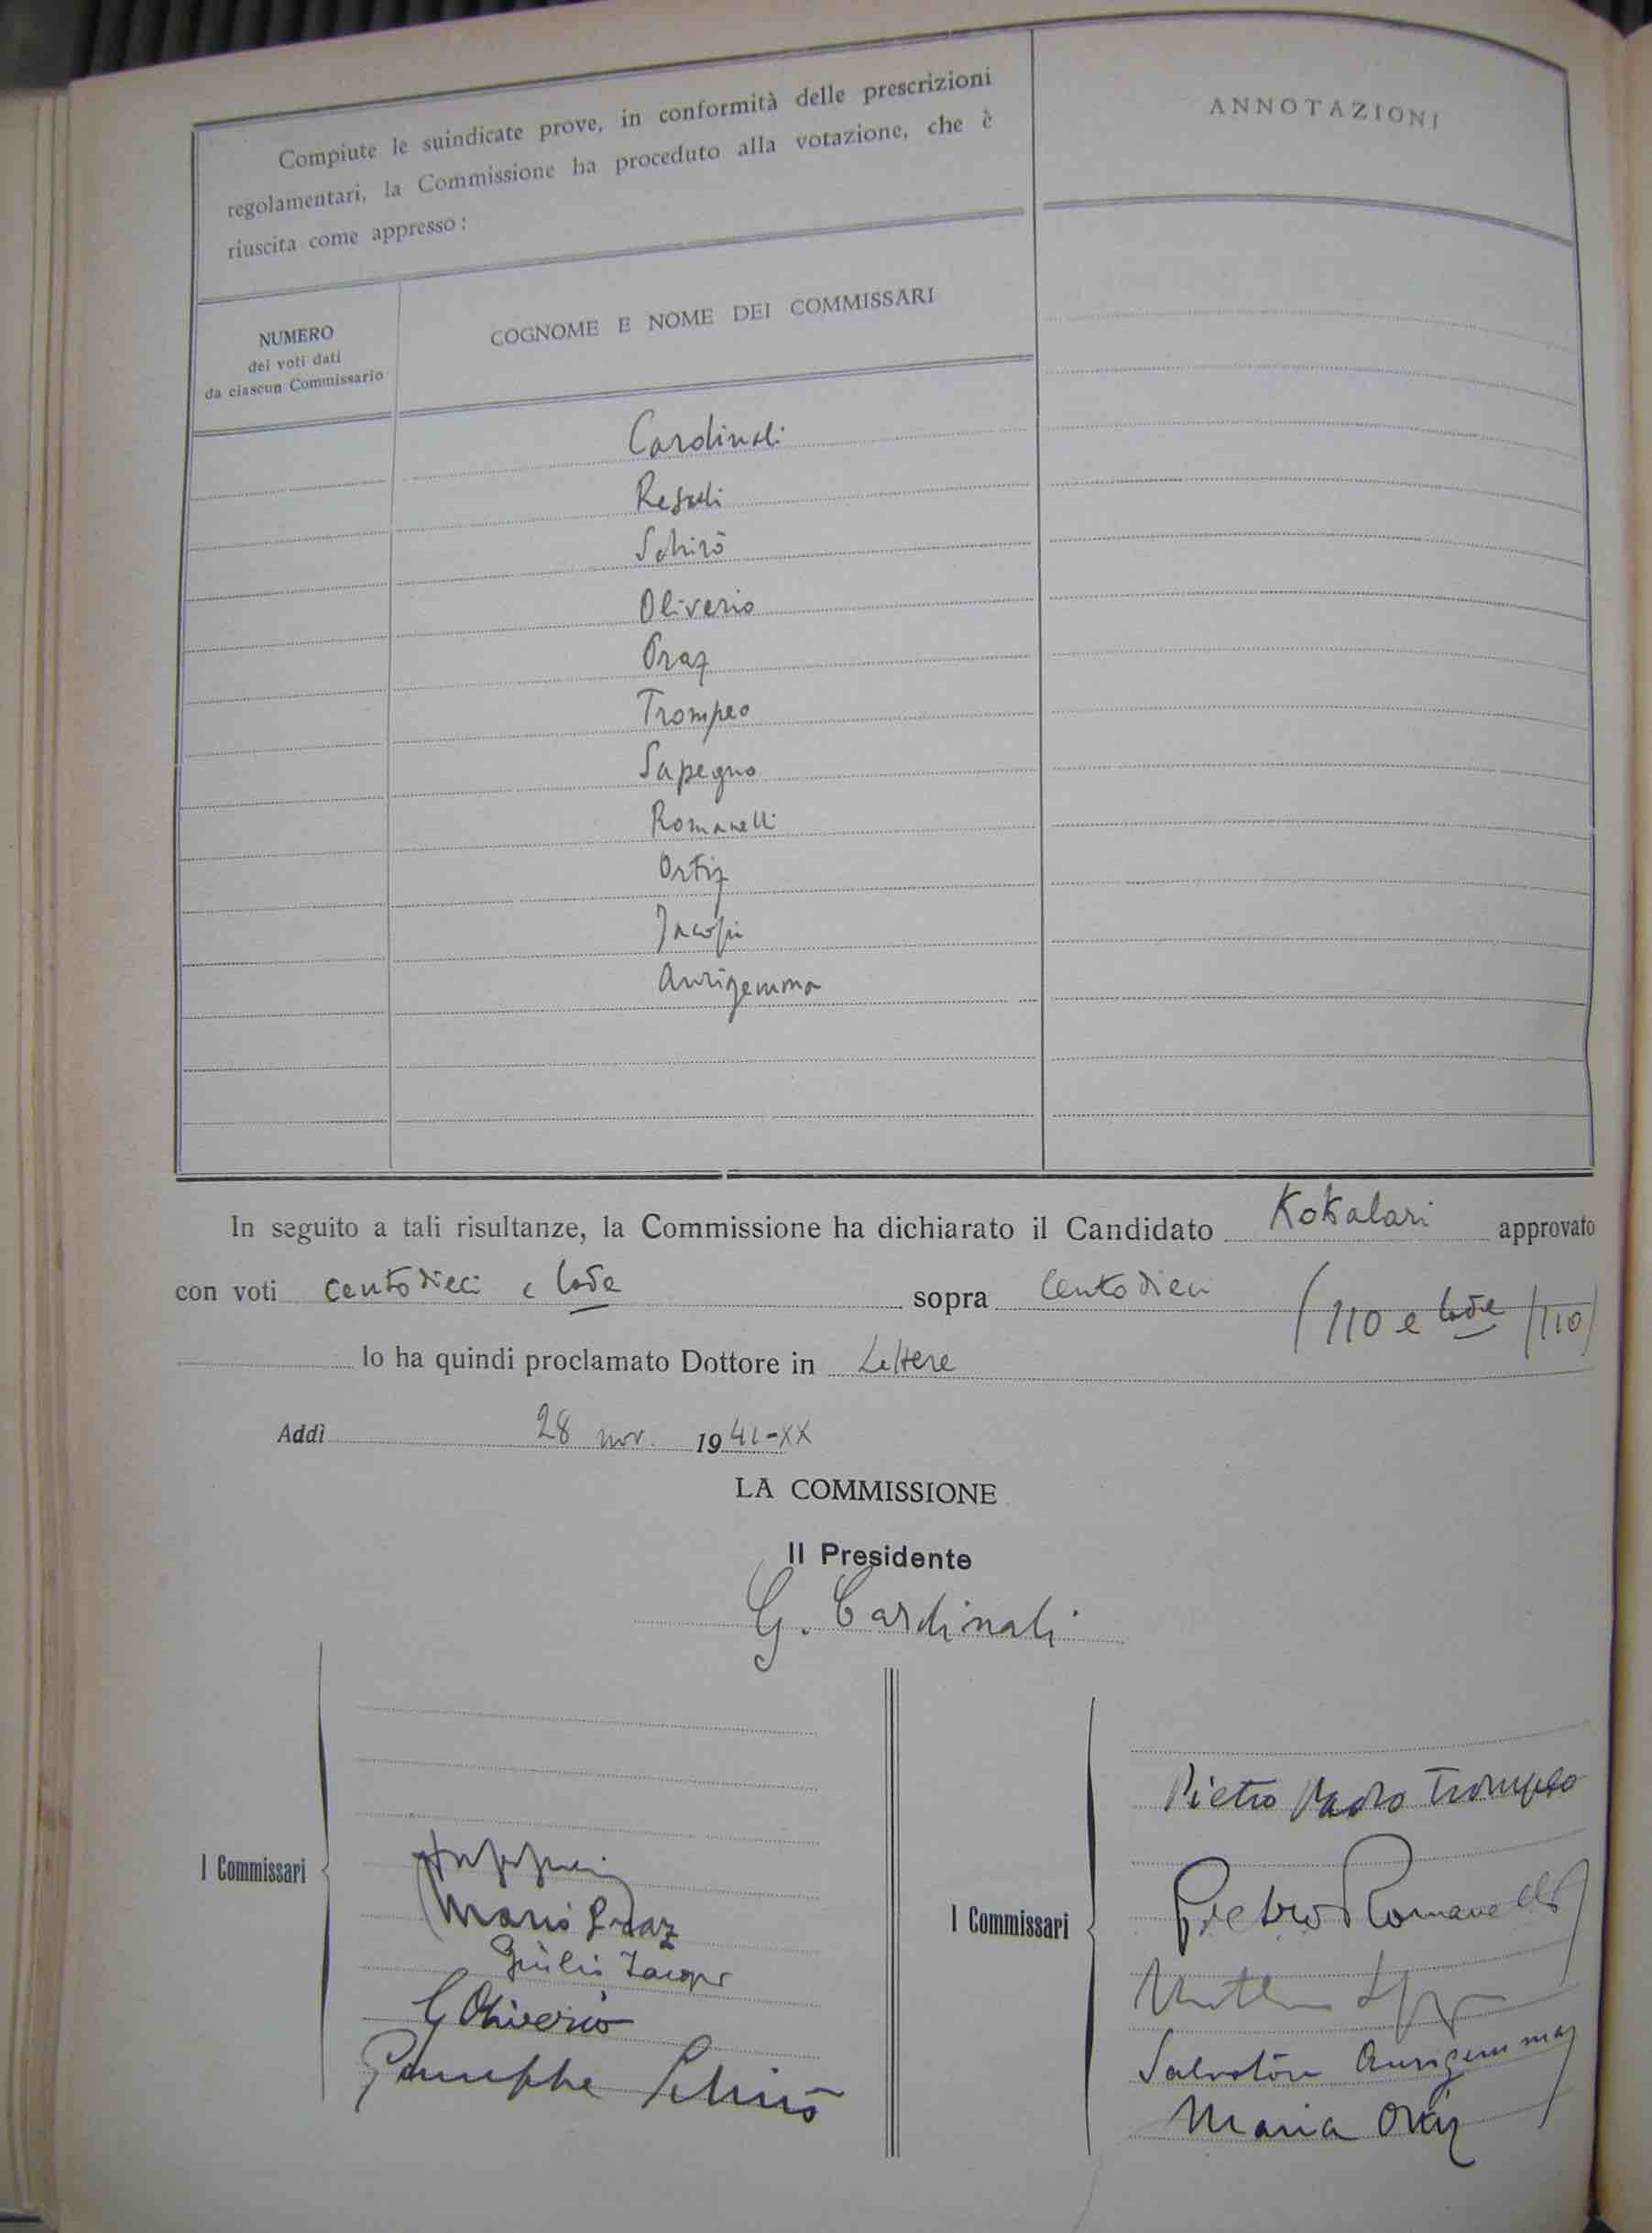 Compiute le suindicate prove, in conformità delle prescrizioni
regolamentari, la Commissione ha proceduto alla votazione, che è
riuscita come appresso:
ANNOTAZIONI
NUMERO
dei voti dati
da ciascun Commissario
COGNOME E NOME DEI COMMISSARI
Cardinali
Schirò
Oliverio
Praz
Trompeo
Sapegno
Romanelli
Ortiz
Jacopi
Aurigemma
In seguito a tali risultanze, la Commissione ha dichiarato il Candidato Kokalari approvato
con voti centodieci e lode sopra centodieci (110 e lode/110)
lo ha quindi proclamato Dottore in Lettere
Addì 28 nov. 1941-XX
LA COMMISSIONE
Il Presidente
G. Cardinali
I Commissari
Mario Praz
Giulio Jacopi
G Oliverio
Giuseppe Schirò
I Commissari
Pietro Paolo Trompeo
Pietro Romanelli
Salvatore Aurigemma
Maria Ortiz